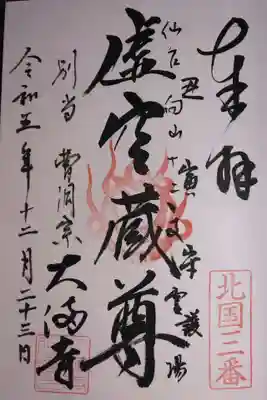 奉拝
北国三番
丑寅
仙台向山十二支守護霊場
虚空蔵尊
別当 曹洞宗 大満寺
令和五年十二月二十三日